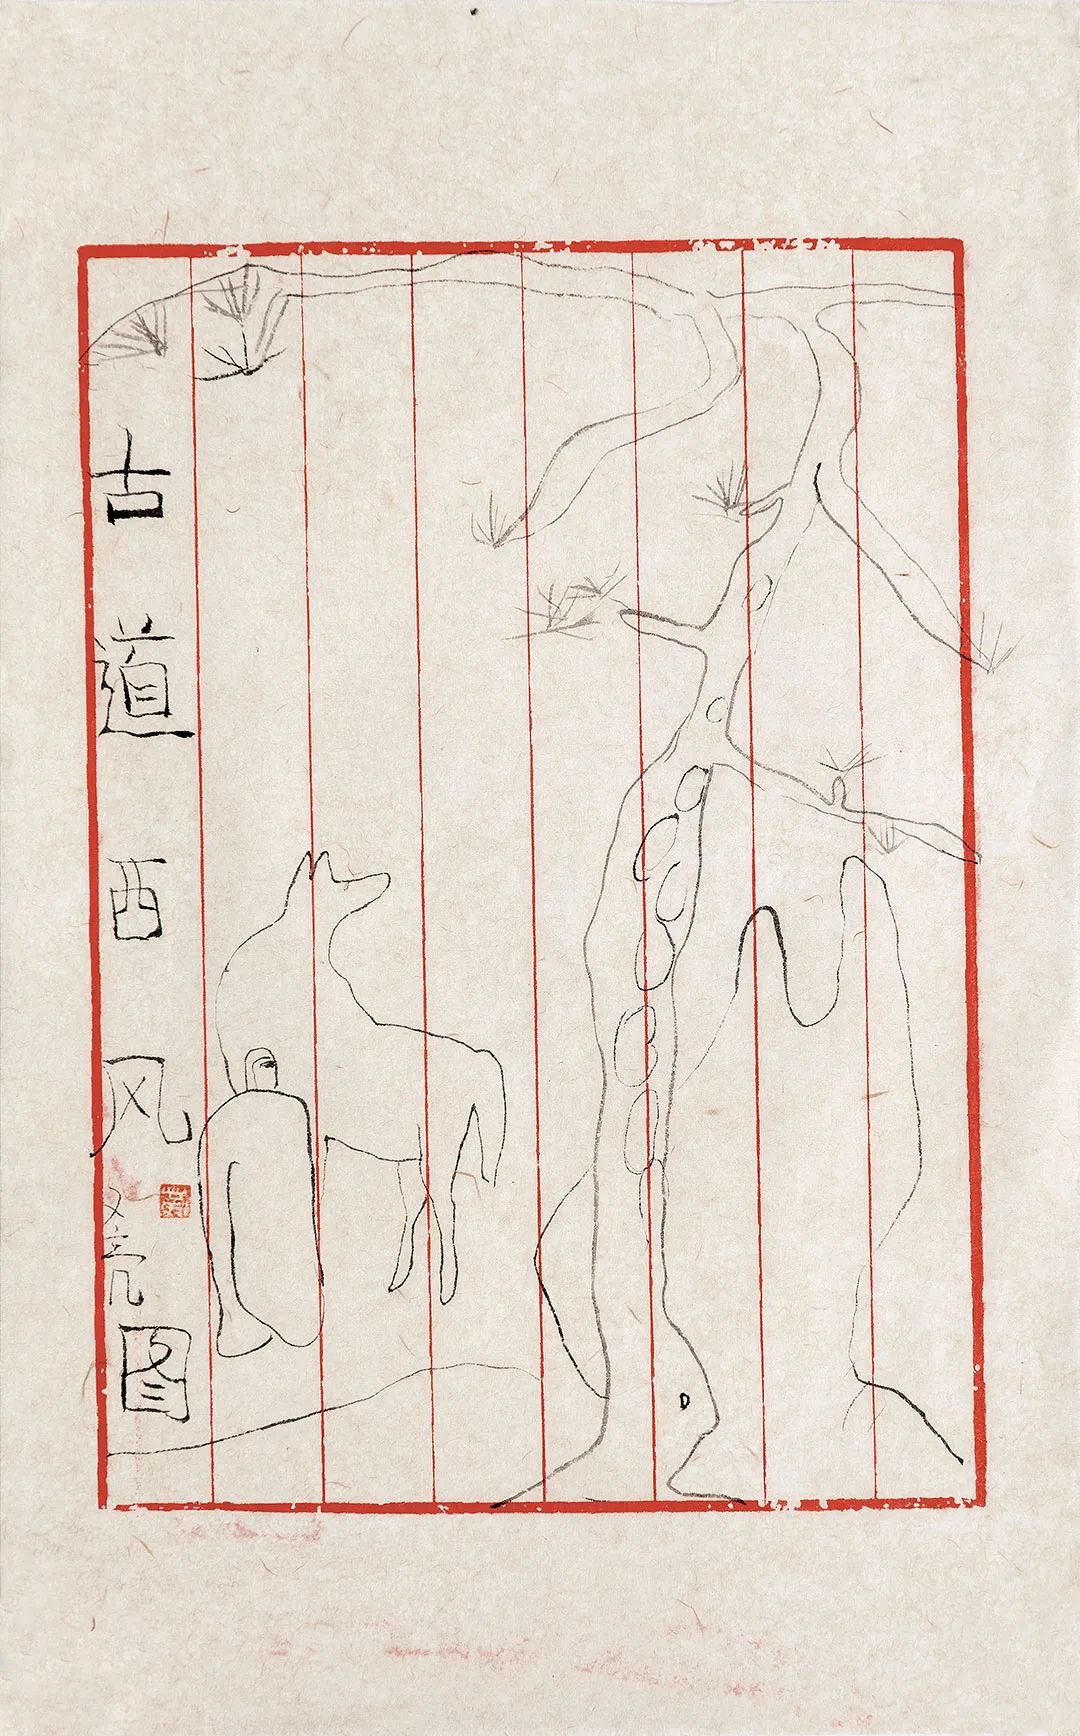 古道西风图